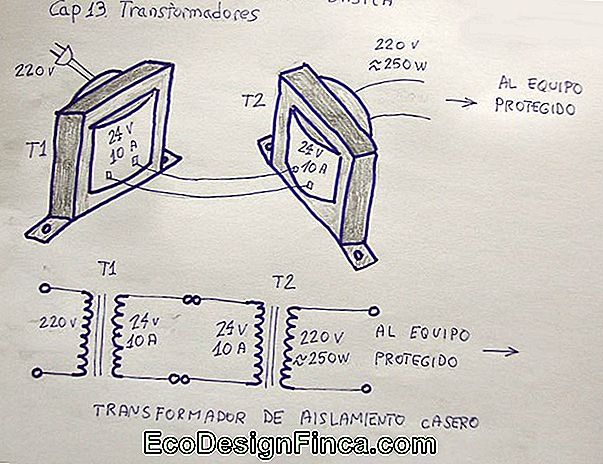 BÁSICA
Cap 13. Transformadores
220v
220 v
≈250W
T1
24v
10 A
T2
24v
10 A
AL EQUIPO
PROTEGIDO
T1
T2
220v
24v
10A
24v
10A
220 v
≈250W
AL EQUIPO
PROTEGIDO
TRANSFORMADOR DE AISLAMIENTO CASERO
EcoDesignFinca.com